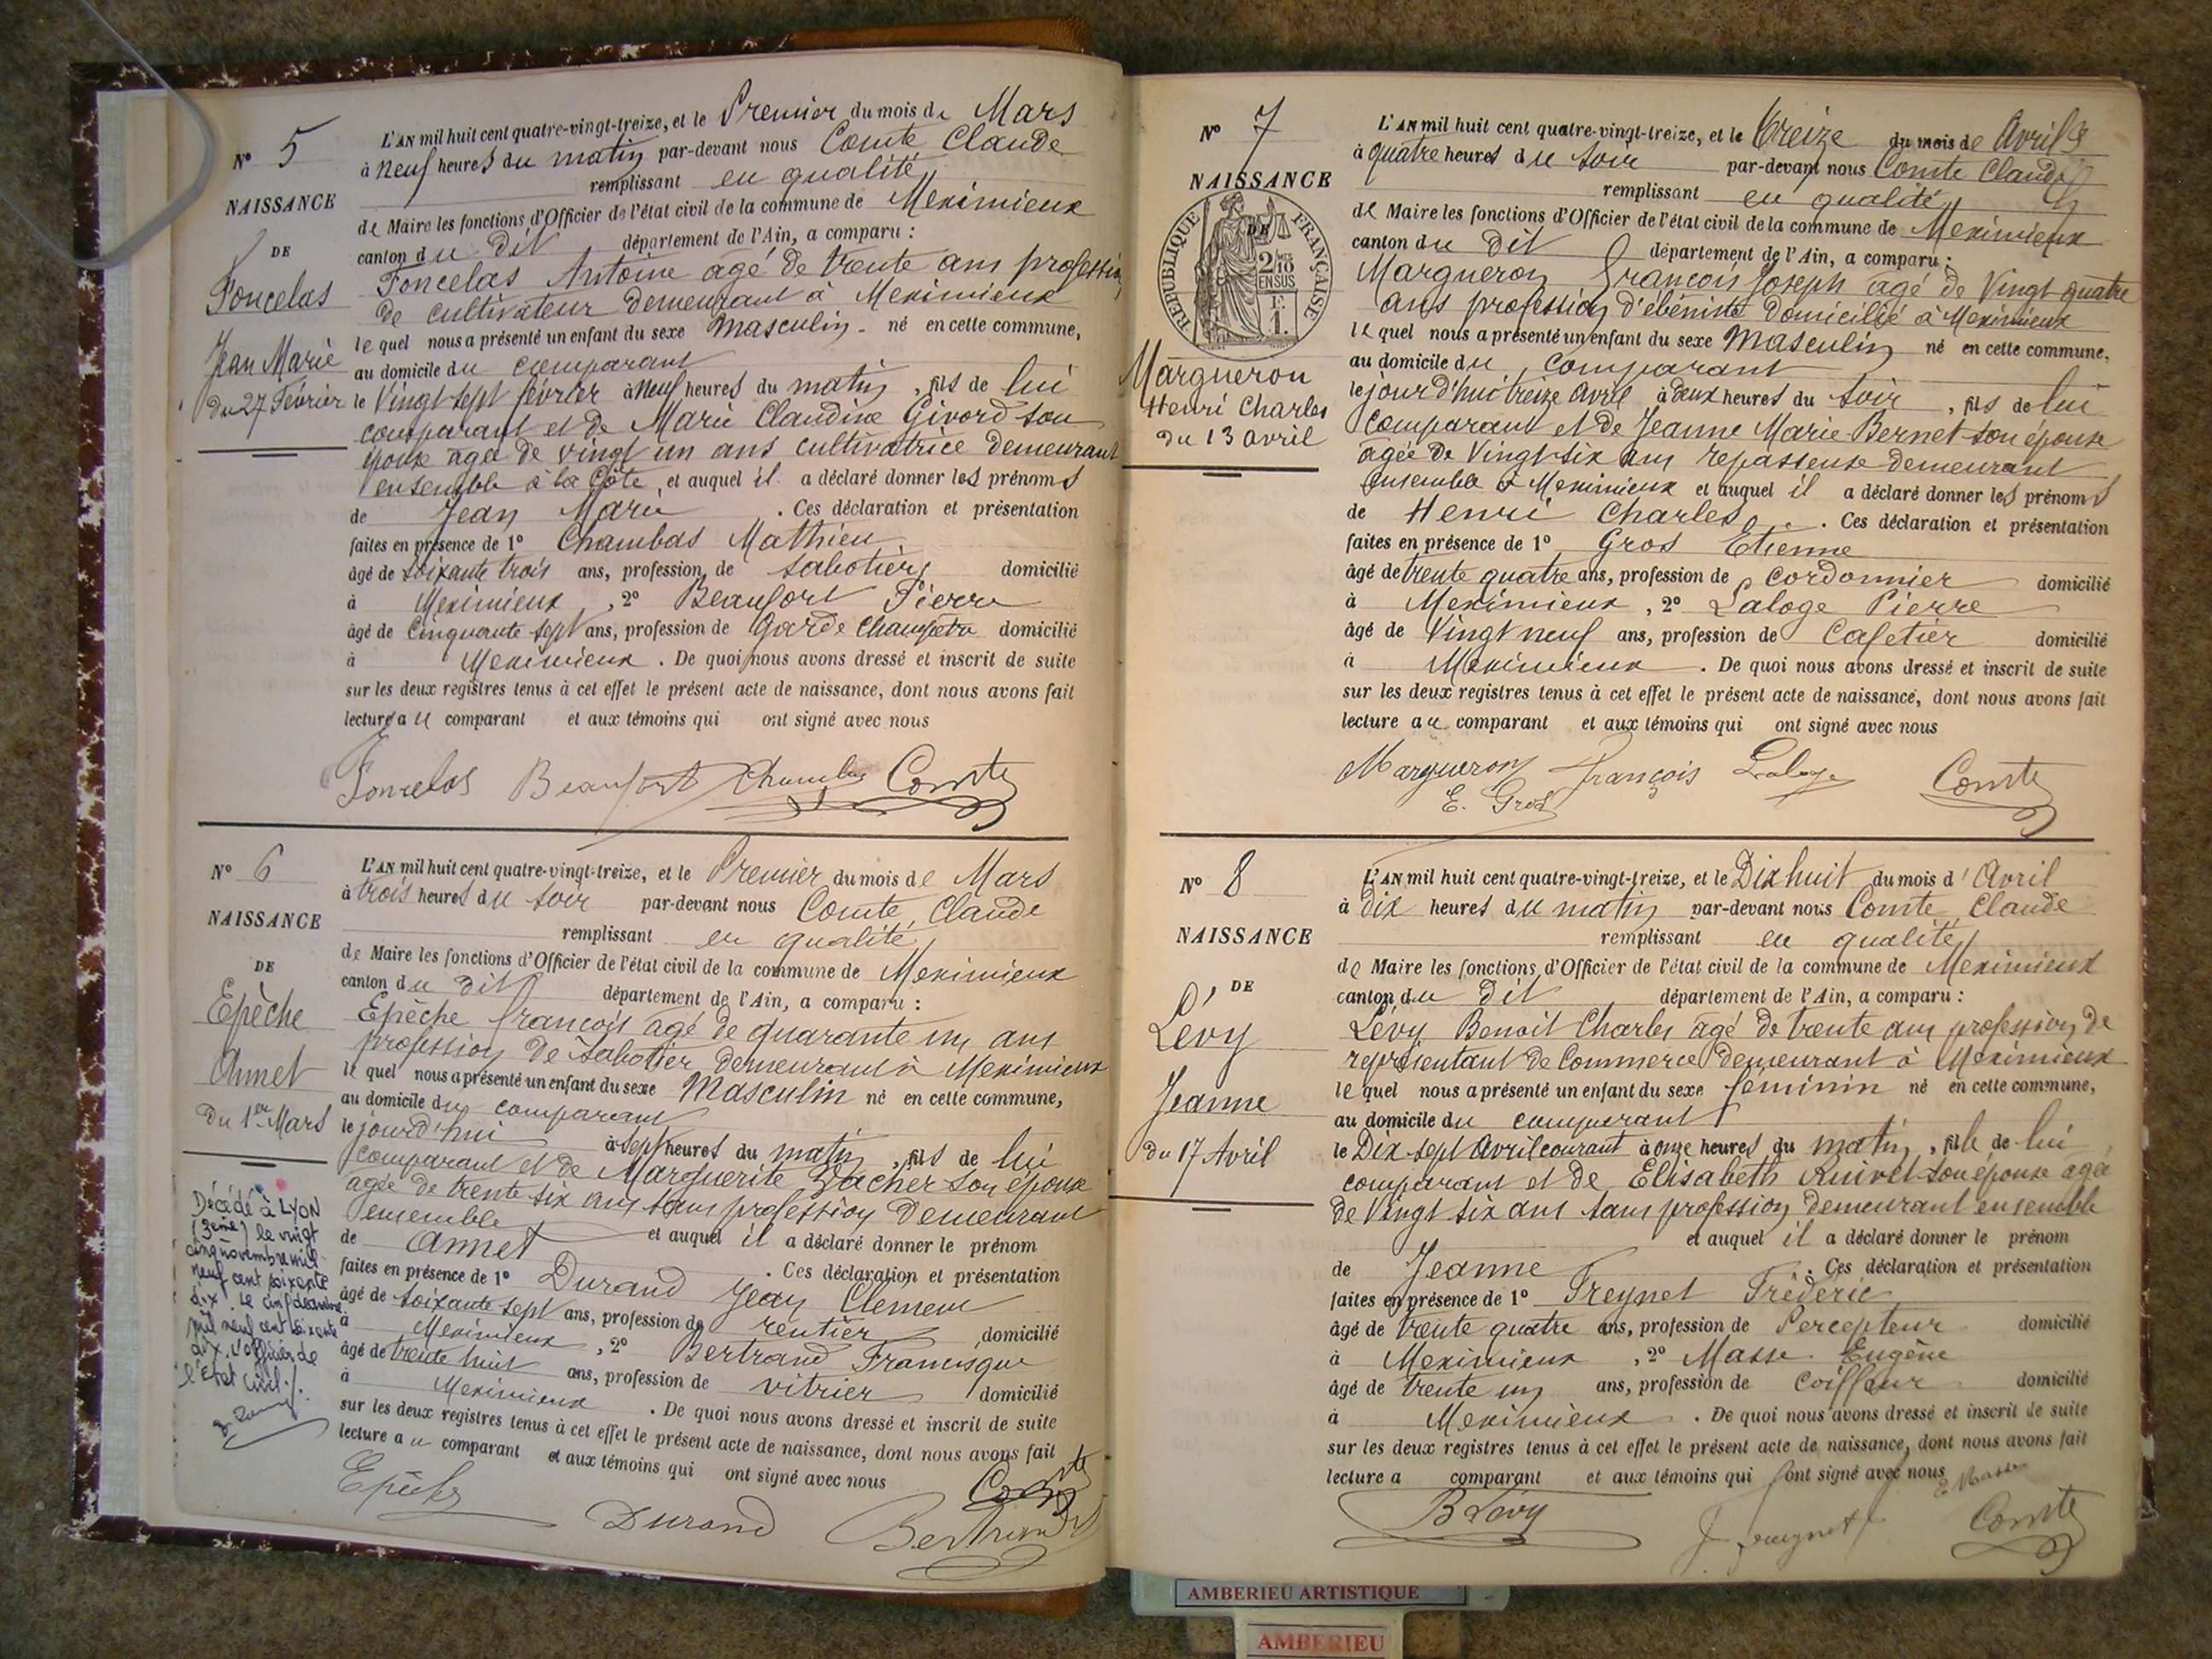 N° 5
NAISSANCE
DE
Foncelas
Jean Marie
du 27 Février
L'AN mil huit cent quatre-vingt-treize, et le Premier du mois de Mars
à neuf heures du matin par-devant nous Comte Claude
remplissant en qualité
de Maire les fonctions d'Officier de l'état civil de la commune de Meximieux
canton du dit département de l'Ain, a comparu :
Foncelas Antoine agé de trente ans profession
de cultivateur demeurant à Meximieux
lequel nous a présenté un enfant du sexe Masculin né en cette commune,
au domicile du comparant
le Vingt sept février à neuf heures du matin, fils de lui
comparant et de Marie Claudine Givord son
épouse agée de vingt un ans cultivatrice demeurant
ensemble à la Côte, et auquel il a déclaré donner les prénoms
de Jean Marie . Ces déclaration et présentation
faites en présence de 1° Chambas Mathieu
âgé de soixante trois ans, profession de sabotier domicilié
à Meximieux, 2° Beaufort Pierre
âgé de Cinquante sept ans, profession de Garde Champêtre domicilié
à Meximieux. De quoi nous avons dressé et inscrit de suite
sur les deux registres tenus à cet effet le présent acte de naissance, dont nous avons fait
lecture au comparant et aux témoins qui ont signé avec nous
Foncelas Beaufort Chambas Comte
N° 6
NAISSANCE
DE
Epèche
Annet
Du 1er Mars
Décédé à LYON
(3ème) le vingt
cinq novembre mil
neuf cent soixante
dix. Le cinq décembre
mil neuf cent soixante
dix. L'officier de
l'état civil./.
L'AN mil huit cent quatre-vingt-treize, et le Premier du mois de Mars
à trois heures du soir par-devant nous Comte Claude
remplissant en qualité
de Maire les fonctions d'Officier de l'état civil de la commune de Meximieux
canton du dit département de l'Ain, a comparu :
Epèche François agé de quarante un ans
profession de Sabotier demeurant à Meximieux
lequel nous a présenté un enfant du sexe Masculin né en cette commune,
au domicile du comparant
le jourd'hui à sept heures du matin, fils de lui
comparant et de Marguerite Vacher son épouse
agée de trente six ans sans profession demeurant
ensemble et auquel il a déclaré donner le prénom
de Annet . Ces déclaration et présentation
faites en présence de 1° Durand Jean Clément
âgé de soixante sept ans, profession de rentier domicilié
à Meximieux, 2° Bertrand Francisque
âgé de trente huit ans, profession de vitrier domicilié
à Meximieux. De quoi nous avons dressé et inscrit de suite
sur les deux registres tenus à cet effet le présent acte de naissance, dont nous avons fait
lecture au comparant et aux témoins qui ont signé avec nous
Epèche Durand Bertrand Comte
N° 7
NAISSANCE
DE
RÉPUBLIQUE FRANÇAISE
2/10 EN SUS
Margueron
Henri Charles
du 13 avril
L'AN mil huit cent quatre-vingt-treize, et le treize du mois de Avril
à quatre heures du soir par-devant nous Comte Claude
remplissant en qualité
de Maire les fonctions d'Officier de l'état civil de la commune de Meximieux
canton du dit département de l'Ain, a comparu :
Margueron François Joseph agé de Vingt quatre
ans profession d'ébéniste domicilié à Meximieux
lequel nous a présenté un enfant du sexe Masculin né en cette commune,
au domicile du comparant
le jourd'hui treize Avril à deux heures du soir, fils de lui
comparant et de Jeanne Marie Bernet son épouse
agée de Vingt six ans repasseuse demeurant
ensemble à Meximieux et auquel il a déclaré donner les prénoms
de Henri Charles . Ces déclaration et présentation
faites en présence de 1° Gros Etienne
âgé de trente quatre ans, profession de cordonnier domicilié
à Meximieux, 2° Laloge Pierre
âgé de Vingt neuf ans, profession de Cafetier domicilié
à Meximieux. De quoi nous avons dressé et inscrit de suite
sur les deux registres tenus à cet effet le présent acte de naissance, dont nous avons fait
lecture au comparant et aux témoins qui ont signé avec nous
Margueron François Laloge Comte
E. Gros
N° 8
NAISSANCE
DE
Lévy
Jeanne
du 17 Avril
L'AN mil huit cent quatre-vingt-treize, et le Dix huit du mois d'Avril
à dix heures du matin par-devant nous Comte Claude
remplissant en qualité
de Maire les fonctions d'Officier de l'état civil de la commune de Meximieux
canton du dit département de l'Ain, a comparu :
Lévy Benoit Charles agé de trente ans profession de
représentant de Commerce demeurant à Meximieux
lequel nous a présenté un enfant du sexe féminin né en cette commune,
au domicile du comparant
le Dix sept Avril courant à onze heures du matin, fille de lui
comparant et de Elisabeth Ruivet son épouse agée
de Vingt six ans sans profession demeurant ensemble
et auquel il a déclaré donner le prénom
de Jeanne . Ces déclaration et présentation
faites en présence de 1° Freynet Fréderic
âgé de trente quatre ans, profession de Percepteur domicilié
à Meximieux, 2° Masse Eugène
âgé de trente un ans, profession de Coiffeur domicilié
à Meximieux. De quoi nous avons dressé et inscrit de suite
sur les deux registres tenus à cet effet le présent acte de naissance, dont nous avons fait
lecture a comparant et aux témoins qui sont signé avec nous
E. Masse
B Lévy F. Freynet Comte
AMBERIEU ARTISTIQUE
AMBERIEU